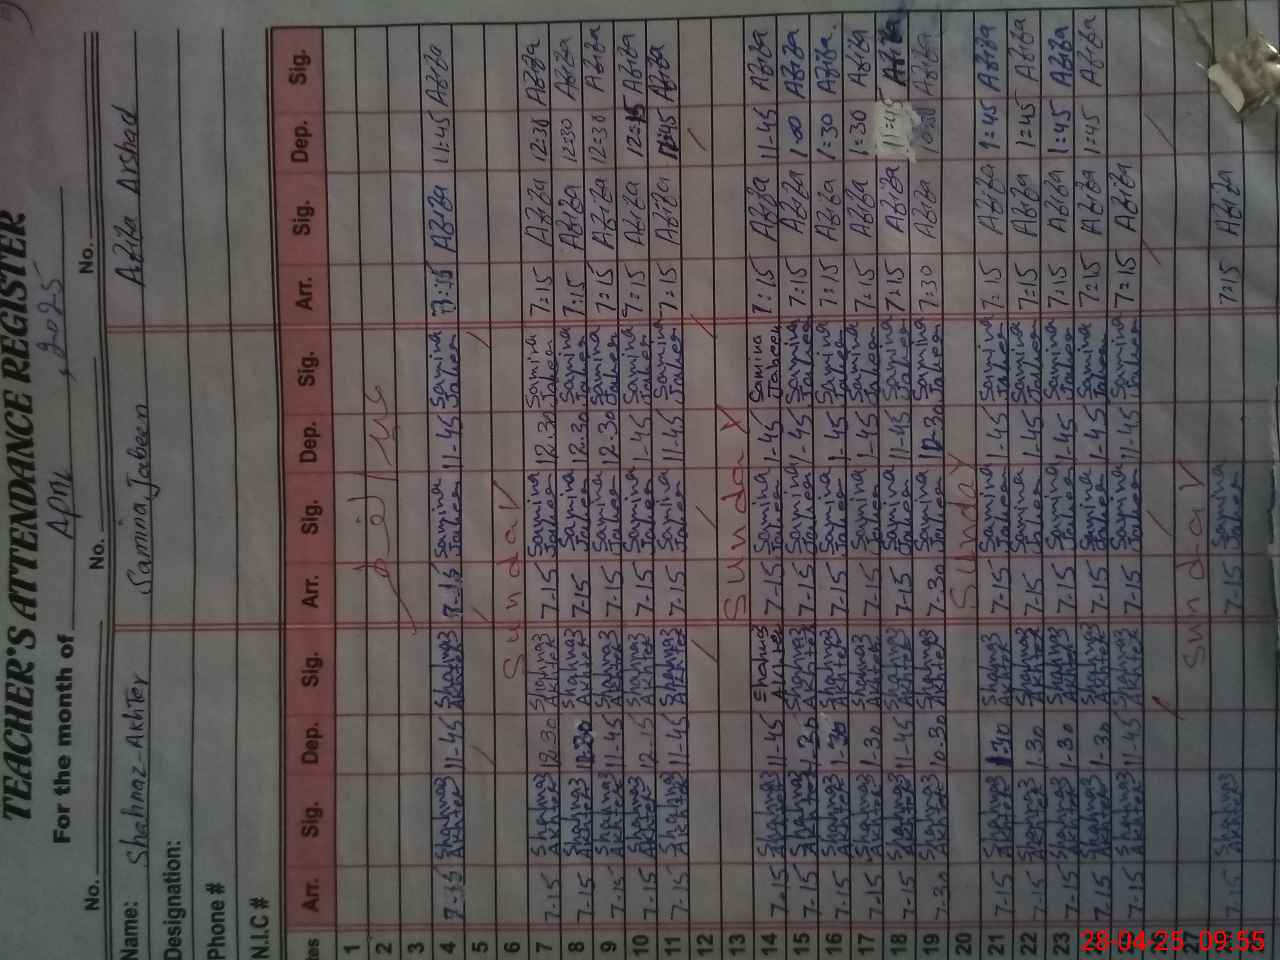 TEACHER'S ATTENDANCE REGISTER
For the month of April, 2025
No. No. No.
Name: Shahnaz-Akhter Samina Jabeen Afifa Arshad
Designation:
Phone #
N.I.C #
tes Arr. Sig. Dep. Sig. Arr. Sig. Dep. Sig. Arr. Sig. Dep. Sig.
1
2
3
4 7-15 Shahnaz Akhter 11-45 Shahnaz Akhter 7-15 Samina Jabeen 11-45 Samina Jabeen 7:15 Afifa 11:45 Afifa
5
6 Sunday
7 7-15 Shahnaz Akhter 12.30 Shahnaz Akhter 7-15 Samina Jabeen 12.30 Samina Jabeen 7:15 Afifa 12:30 Afifa
8 7-15 Shahnaz Akhter 12.30 Shahnaz Akhter 7-15 Samina Jabeen 12.30 Samina Jabeen 7:15 Afifa 12:30 Afifa
9 7-15 Shahnaz Akhter 11-45 Shahnaz Akhter 7-15 Samina Jabeen 12.30 Samina Jabeen 7:15 Afifa 12:30 Afifa
10 7-15 Shahnaz Akhter 12-15 Shahnaz Akhter 7-15 Samina Jabeen 1-45 Samina Jabeen 7:15 Afifa 12:15 Afifa
11 7-15 Shahnaz Akhter 11-45 Shahnaz Akhter 7-15 Samina Jabeen 11-45 Samina Jabeen 7:15 Afifa Afifa
12
13 Sunday
14 7-15 Shahnaz Akhter 11-45 Shahnaz Akhter 7-15 Samina Jabeen 1-45 Samina Jabeen 7:15 Afifa 11-45 Afifa
15 7-15 Shahnaz Akhter 1-30 Shahnaz Akhter 7-15 Samina Jabeen 1-45 Samina Jabeen 7:15 Afifa 1:00 Afifa
16 7-15 Shahnaz Akhter 1-30 Shahnaz Akhter 7-15 Samina Jabeen 1-45 Samina Jabeen 7:15 Afifa 1:30 Afifa.
17 7-15 Shahnaz Akhter 1-30 Shahnaz Akhter 7-15 Samina Jabeen 1-45 Samina Jabeen 7:15 Afifa 1:30 Afifa
18 7-15 Shahnaz Akhter 11-45 Shahnaz Akhter 7-15 Samina Jabeen 11-45 Samina Jabeen 7:15 Afifa 11:45 Afifa
19 7-30 Shahnaz Akhter 10.30 Shahnaz Akhter 7-30 Samina Jabeen 12-30 Samina Jabeen 7:30 Afifa 10:30 Afifa
20 Sunday
21 7-15 Shahnaz Akhter 1-30 Shahnaz Akhter 7-15 Samina Jabeen 1-45 Samina Jabeen 7:15 Afifa 1:45 Afifa
22 7-15 Shahnaz Akhter 1-30 Shahnaz Akhter 7-15 Samina Jabeen 1-45 Samina Jabeen 7:15 Afifa 1:45 Afifa
23 7-15 Shahnaz Akhter 1-30 Shahnaz Akhter 7-15 Samina Jabeen 1-45 Samina Jabeen 7:15 Afifa 1:45 Afifa
7-15 Shahnaz Akhter 1-30 Shahnaz Akhter 7-15 Samina Jabeen 1-45 Samina Jabeen 7:15 Afifa 1:45 Afifa
7-15 Shahnaz Akhter 11-45 Shahnaz Akhter 7-15 Samina Jabeen 11-45 Samina Jabeen 7:15 Afifa
Sunday
7-15 Shahnaz Akhter 7-15 Samina Jabeen 7:15 Afifa
28-04-25 09:55